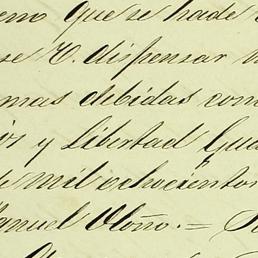 que se ha de
se V. dispensar
mas debidas con
y Libertad Gua
mil ochocientos
anuel Oloño. =